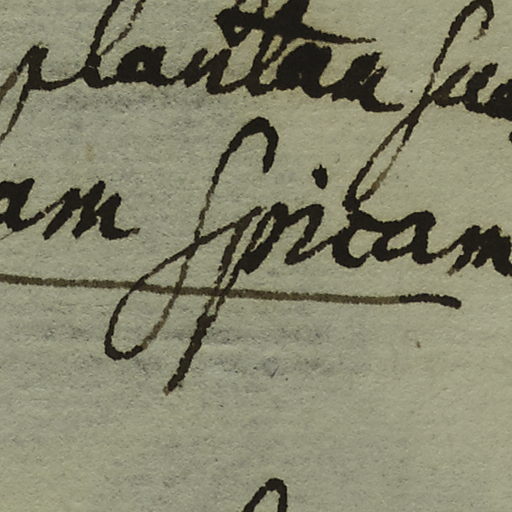 plantaa sua
am Spicam